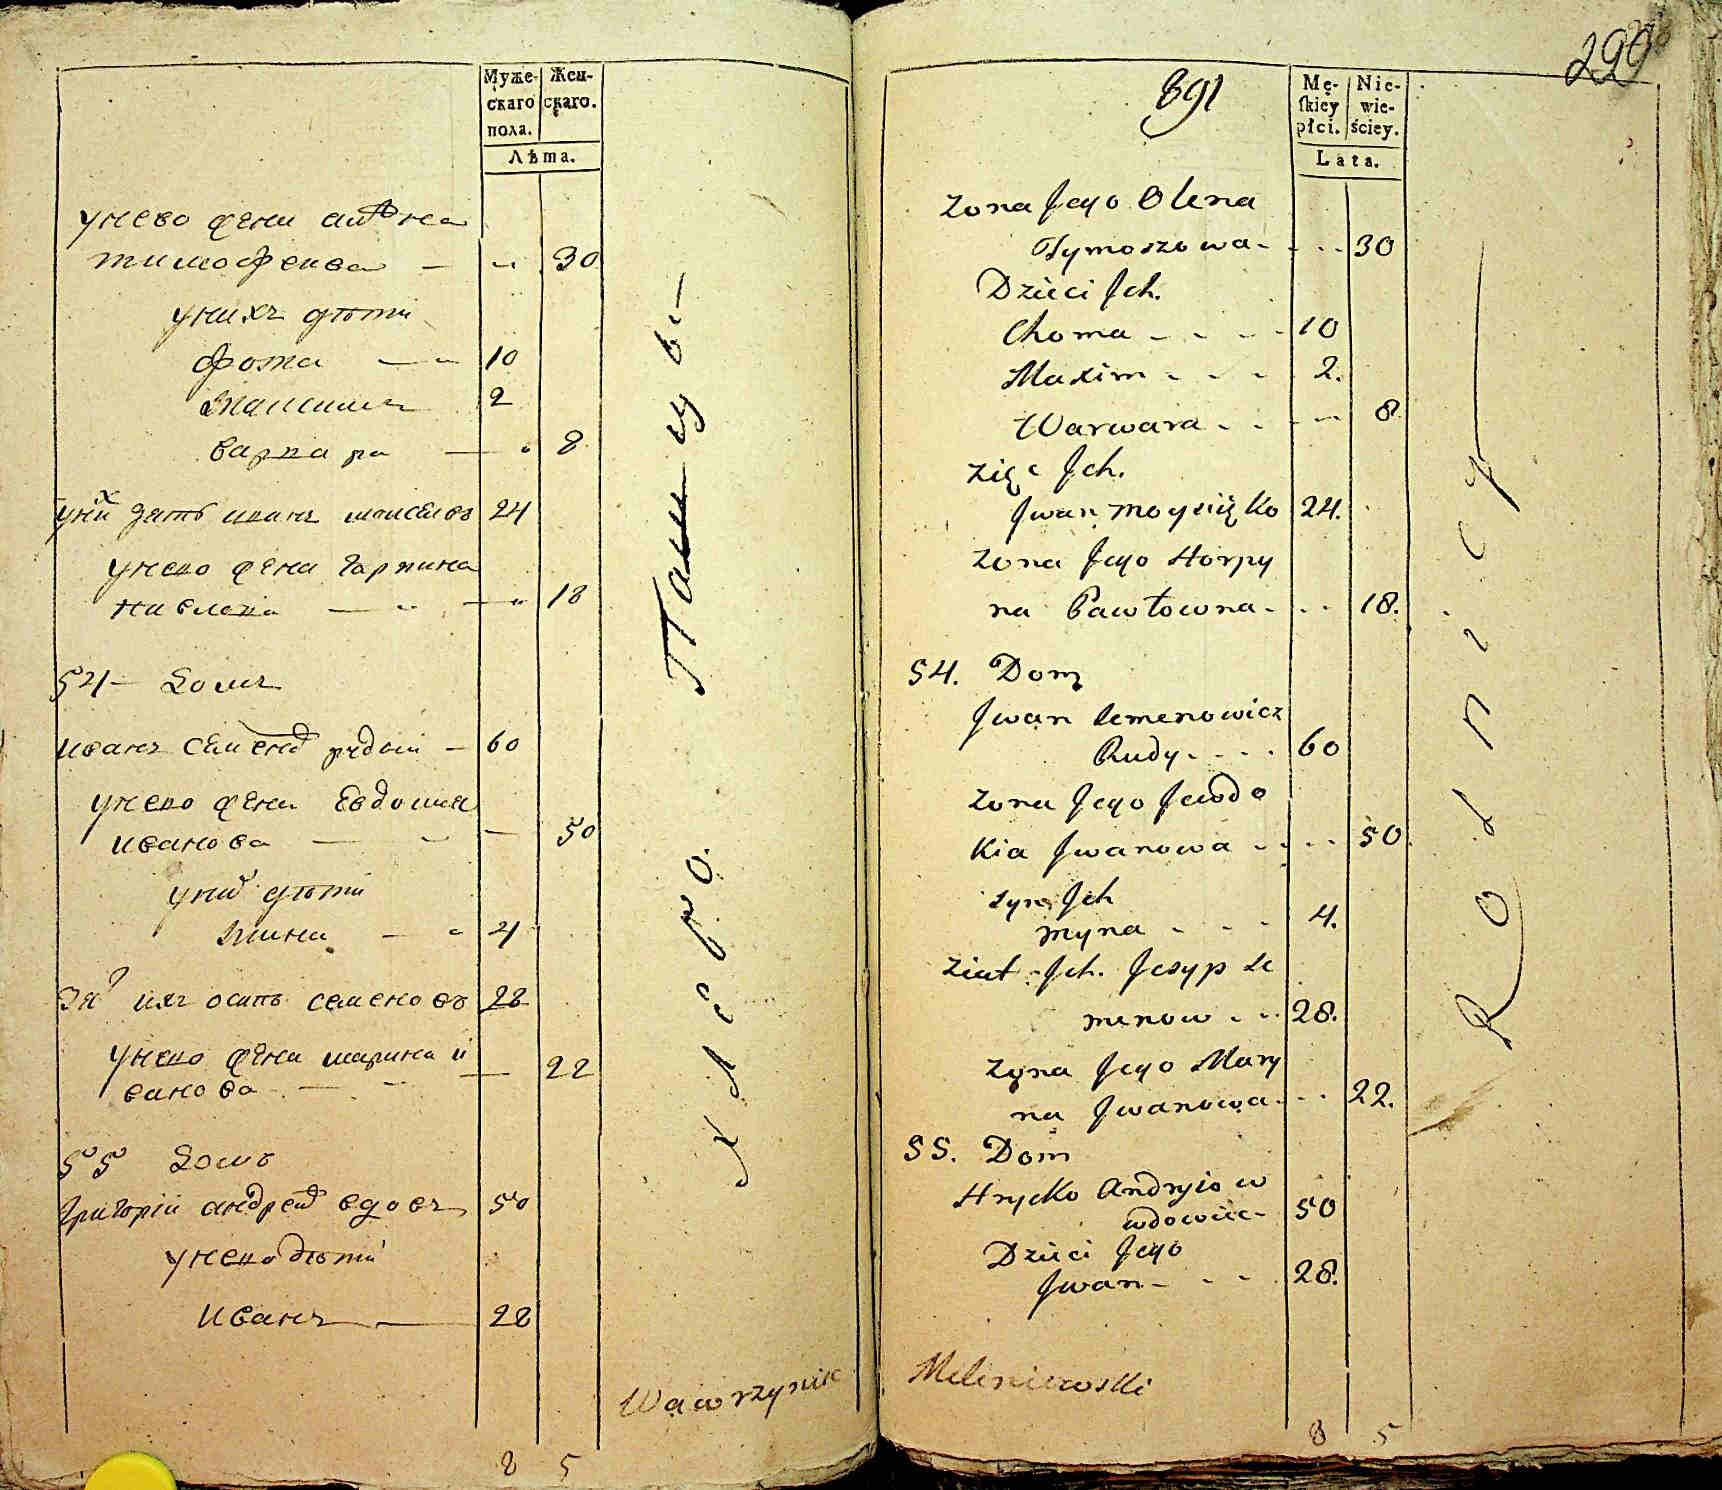 Муже-
скаго
пола.
Жен-
скаго.
Лѣта.
унево жени
тимофеива — „ 30
унихъ дѣти
фома — „ 10
Максимъ 2
варвара — „ 8
уних зять иванъ моисеевъ 24
унево жена Гарпина
павлова — „ — „ 18
54 — Домъ
иванъ семенов рудыи — 60
унево жена Евдокия
иванова — „ — 50
уних дѣти
Мина — „ 4
Зят ихъ осипъ семеновъ 28
унево жена марина и
ванова — „ — 22
55 Домъ
Григории андреев вдовъ 50
унево дѣти
Иванъ — 28
8 5
хлебро.
Wawrzyniec
299
891
Mę-
ſkiey
płci.
Nie-
wie-
ściey.
Lata.
Zona Jego Olena
Tymoszowa - - - 30
Dzieci Jch.
Choma - - - - 10
Maxim - - - 2.
Warwara - - - - 8
Zięc Jch.
Jwan Moysiiętko 24.
Zona Jego Horpy
na Pawłowna - - - 18.
54. Dom
Jwan Semenowicz
Rudy - - - - 60
Zona Jego Jewdo
kia Jwanowa - - - - 50
Syn Jch
Myna - - - 4.
Ziat Jch. Jesyp Se
menow - - - 28.
Zona Jego Mary
na Jwanowa - - - 22.
55. Dom
Hrycko Andryiow
wdowiec - 50
Dzieci Jego
Jwan - - - 28.
Rolnicy
Meleniewski
8 5